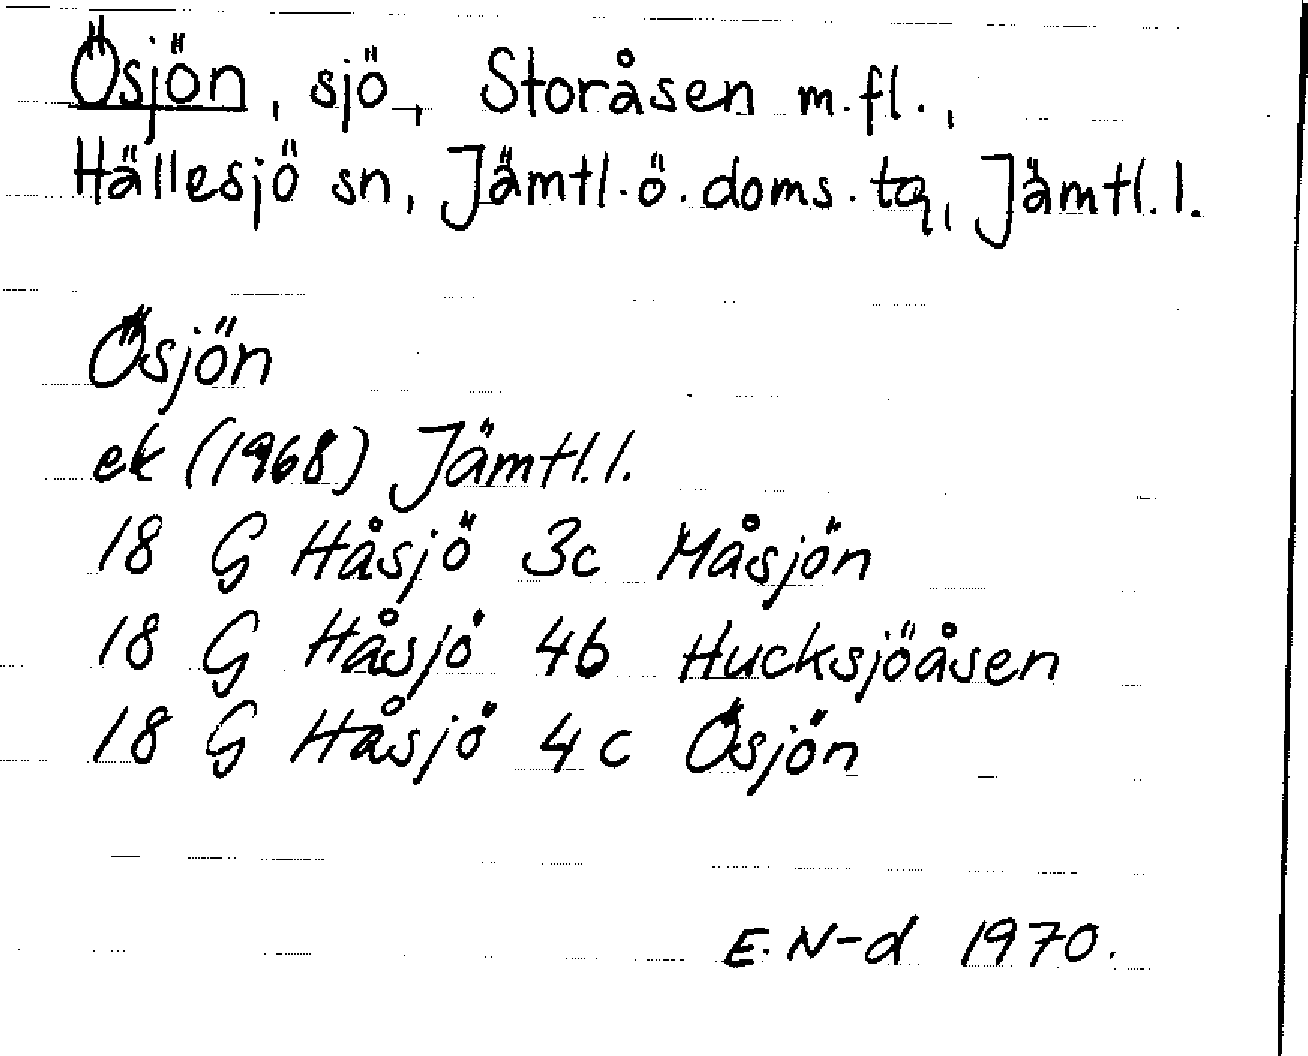 Ösjön, sjö, Storåsen m.fl.,
Hällesjö sn, Jämtl.ö.doms.tg, Jämtl.l.
Ösjön
ek (1968) Jämtl.l.
18 G Håsjö 3c Måsjön
18 G Håsjö 4b Hucksjöåsen
18 G Håsjö 4c Ösjön
E.N-d 1970.